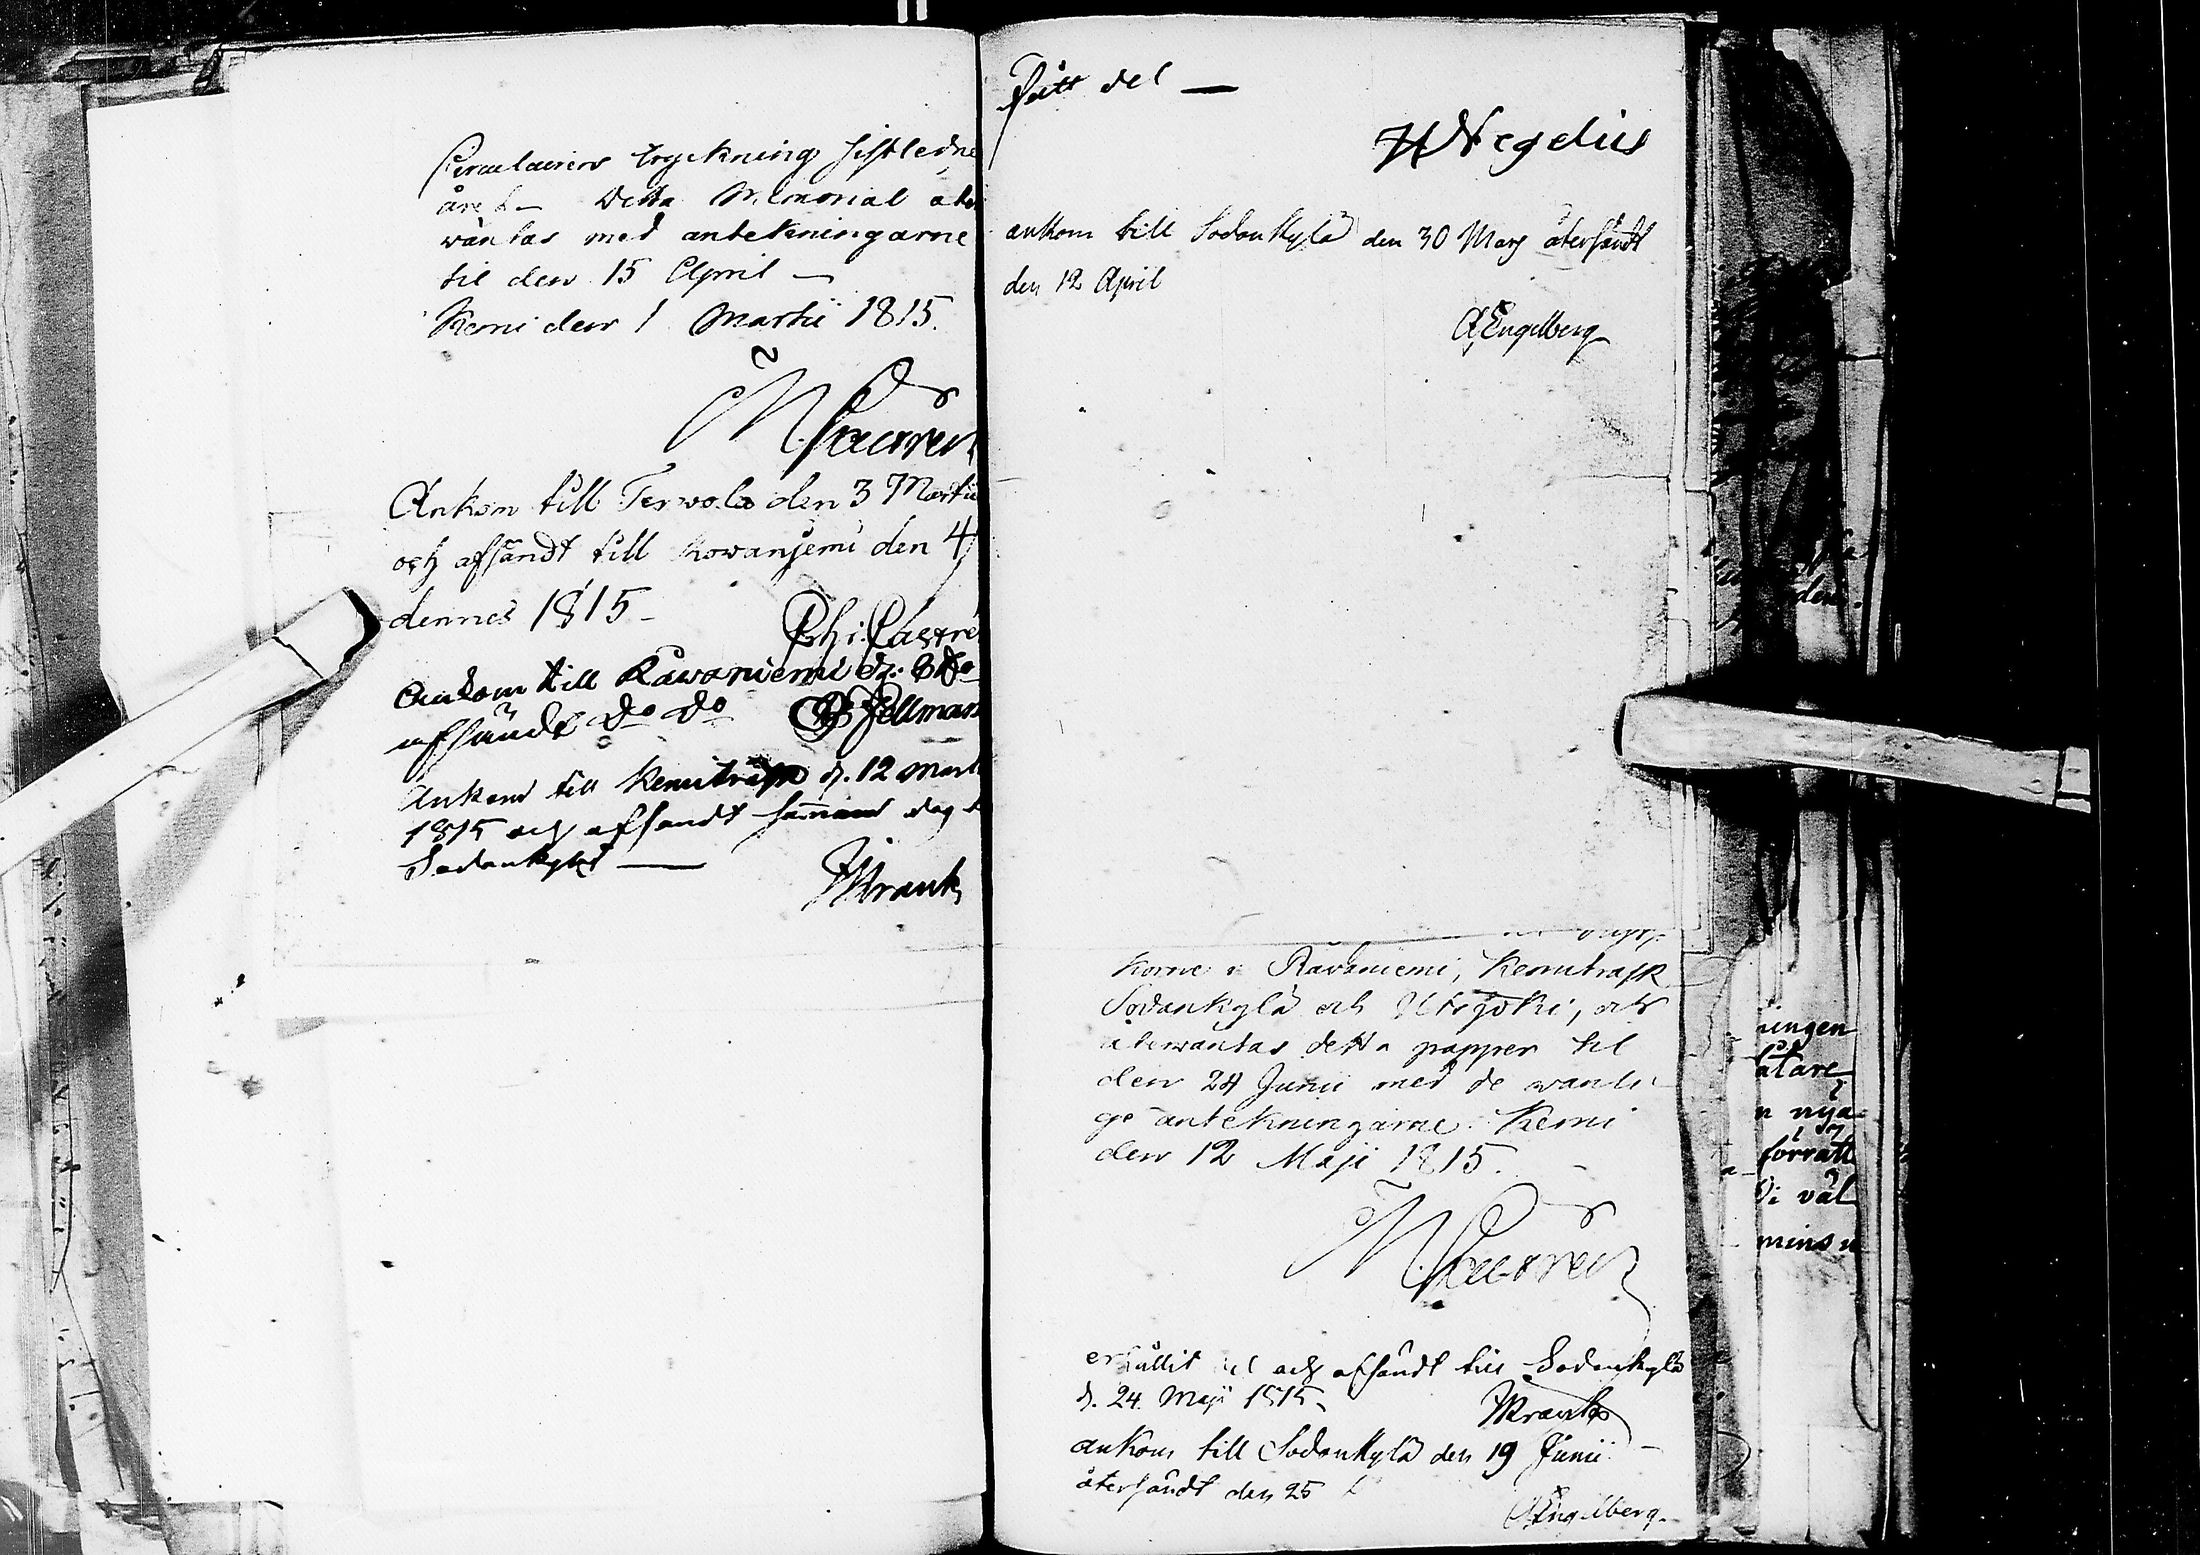 Circulairens tryckning sistledne
året – Detta Memorial åter
väntas med antekningarne
til den 15 April –
Kemi den 1 Martii 1815.
M. Castren
Ankom till Terwola den 3 Martii
och afsändt till Rowanjemi den 4
dennes 1815 –
Ph: Castré
Ankom till Råwaniemi d. 6 do
afsändt do do
Fellman
Ankom till Kemiträsk d. 12 Mart
1815 och afsändt samma dag t
Sodankylä —
Wrank
fått del —
HWegelius
ankom till Sodankylä den 30 Mars återsändt
den 12 April
A Engelberg
korne i Råvaniemi, Kemiträsk
Sodankylä och Utsjoki, och
återwäntas detta papper til
den 24 Junii med de wanli-
ge antekningarne. Kemi
den 12 Maji 1815.
M. Castren
erhållit del och afsändt till Sodankylä
d. 24 Maji 1815.
Wrank
ankom till Sodankylä den 19 Junii –
återsändt den 25
A Engelberg
ningen
åtare
n nya
förrätt
Di väl
mins